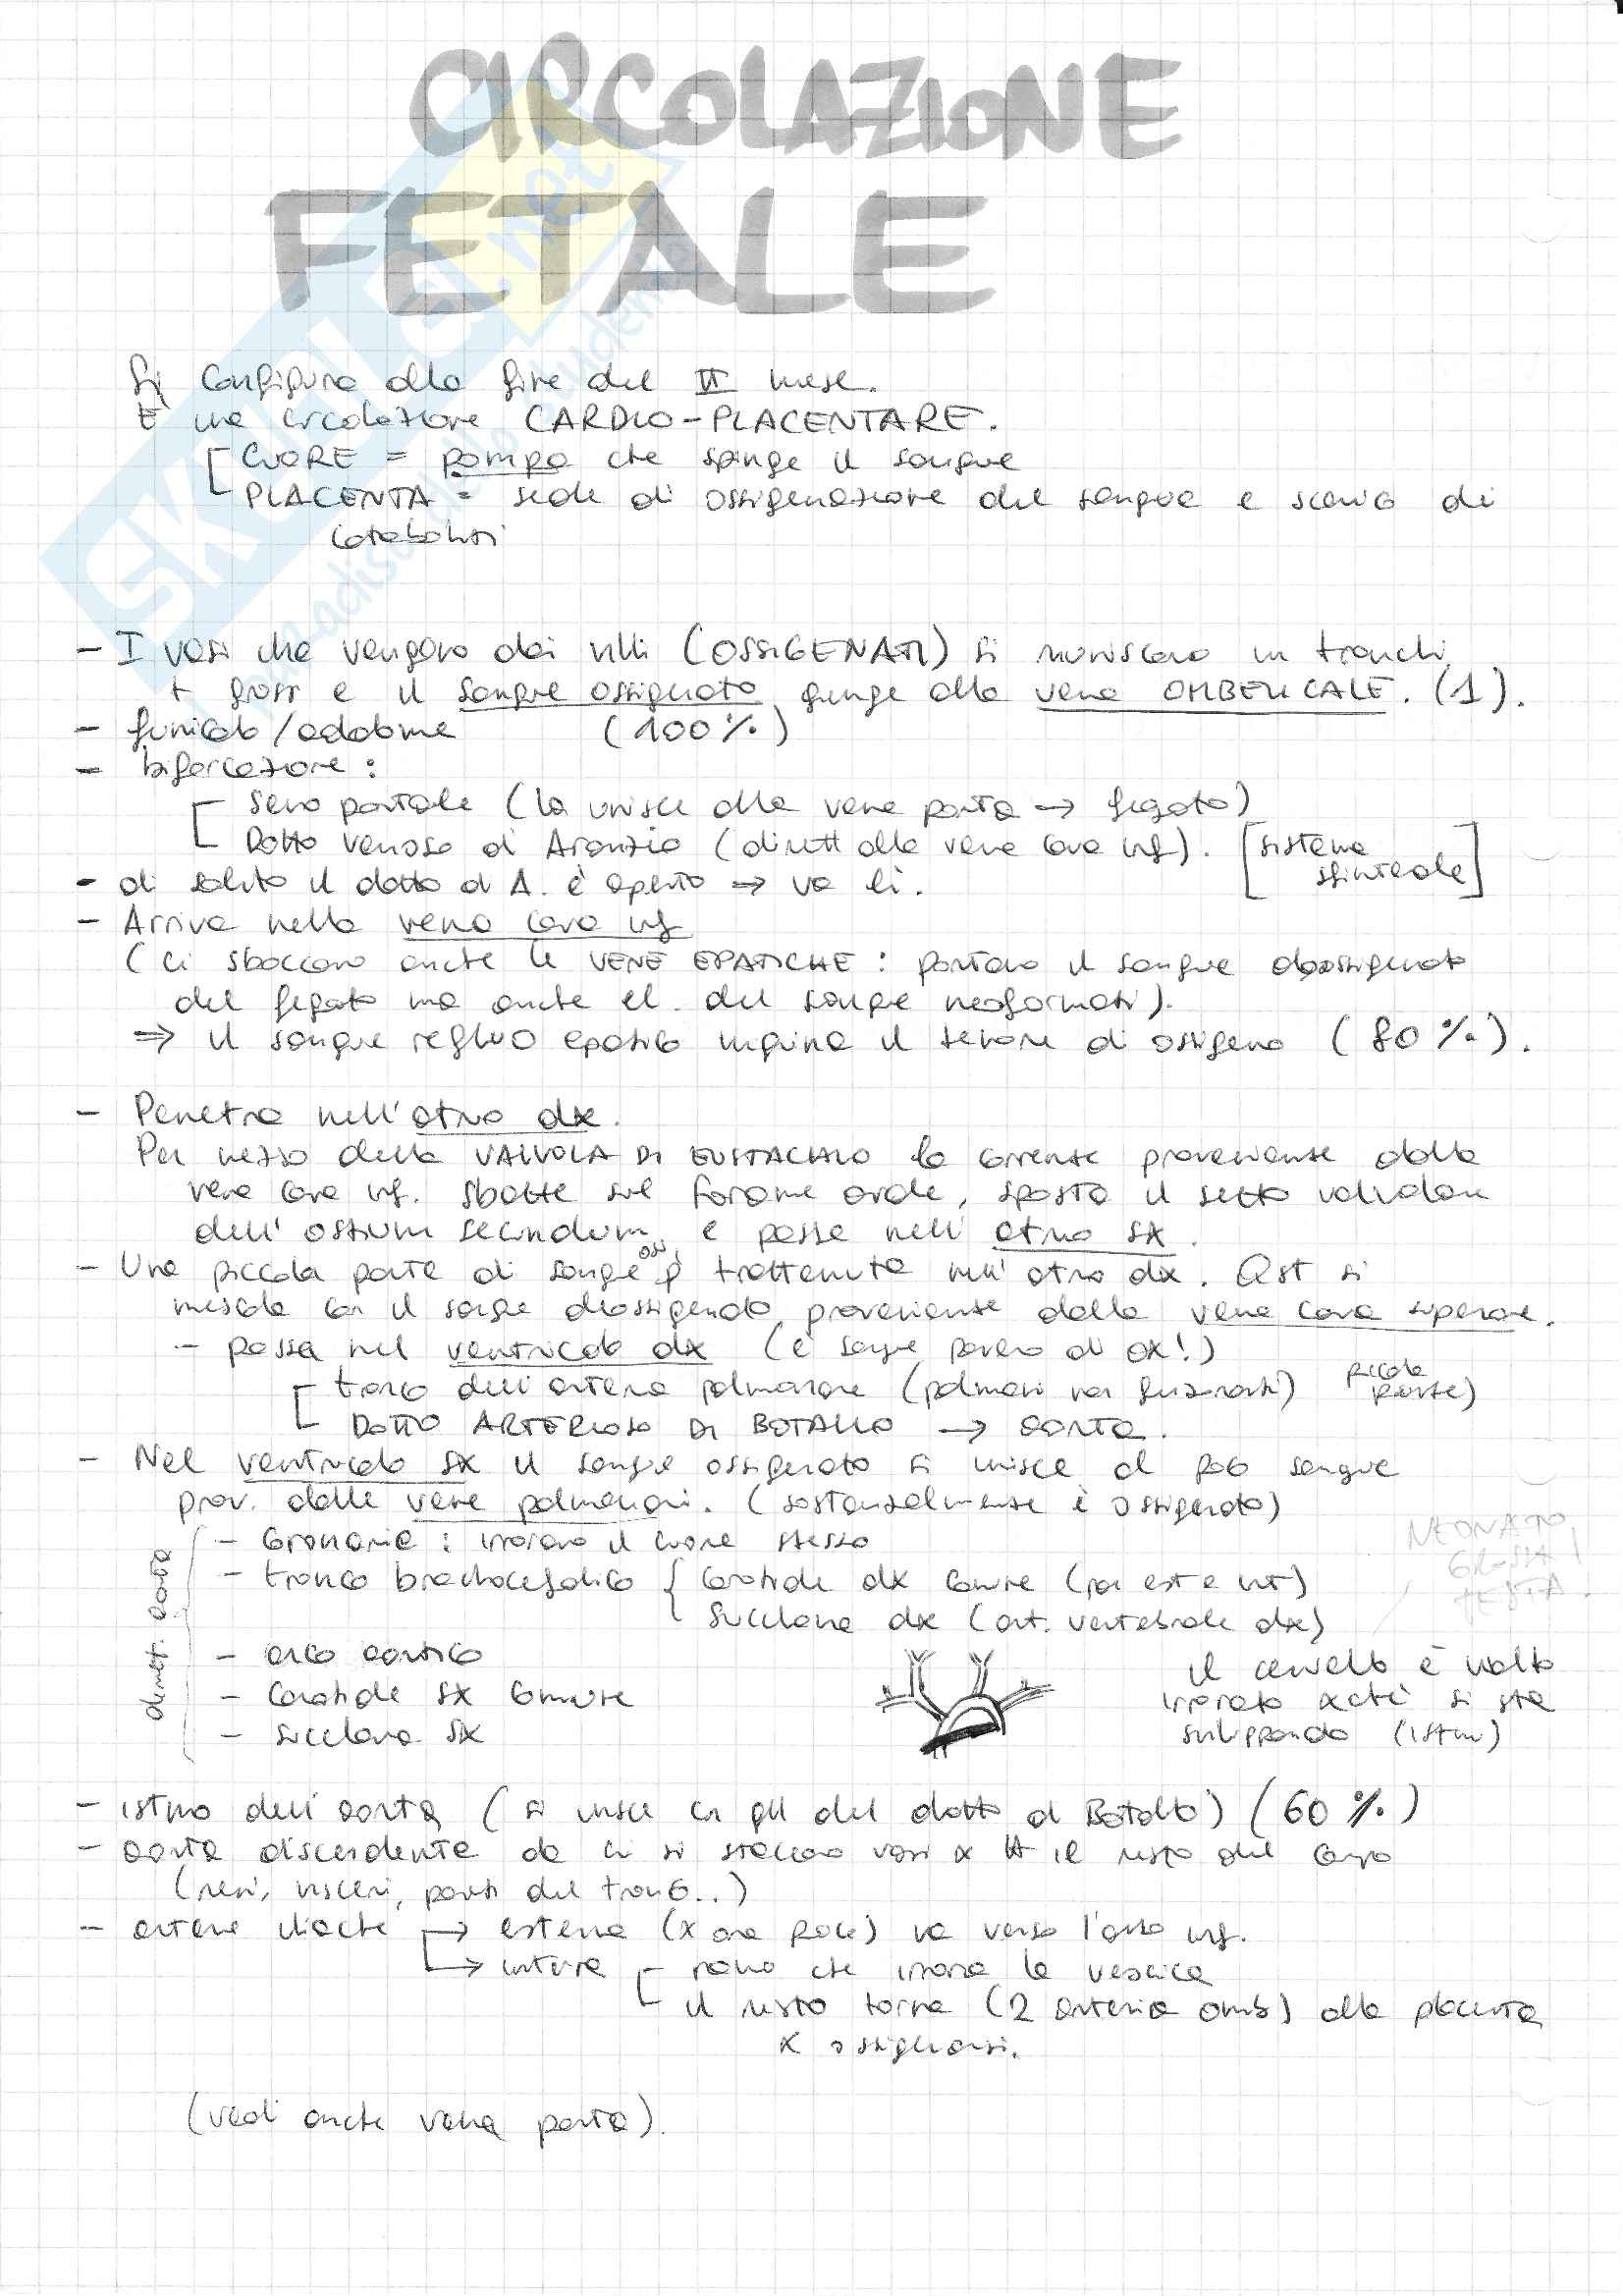 CIRCOLAZIONE
FETALE
Si configura alla fine del II mese.
È una circolazione CARDIO-PLACENTARE.
CUORE = pompa che spinge il sangue
PLACENTA = sede di ossigenazione del sangue e scarico di
cataboliti
- I vasi che vengono dai villi (OSSIGENATI) si riuniscono in tronchi
+ grossi e il sangue ossigenato giunge alla vena OMBELICALE. (1).
- funicolo/addome (100%)
- biforcazione:
seno portale (la unisce alla vena porta → fegato)
Dotto venoso di Aranzio (dirett alla vena cava inf). [sistema
sfinteriale]
- di solito il dotto di A. è aperto ⇒ va lì.
- Arriva nella vena cava inf
(ci sboccano anche le VENE EPATICHE: portano il sangue deossigenato
del fegato ma anche el. del sangue neoformati).
⇒ il sangue refluo epatico inquina il tenore di ossigeno (80%).
- Penetra nell'atrio dx.
Per mezzo della VALVOLA DI EUSTACHIO la corrente proveniente dalla
vena cava inf. sbatte sul forame ovale, sposta il setto valvolare
dell'ostium secundum, e passa nell'atrio sx.
- Una piccola parte di sangue oss è trattenuta nell'atrio dx. Qst si
mescola con il sangue deossigenato proveniente dalla vena cava superiore.
- passa nel ventricolo dx (è sangue povero di ox!)
tronco dell'arteria polmonare (polmoni non funzionanti) piccola
parte)
DOTTO ARTERIOSO DI BOTALLO → aorta.
- Nel ventricolo sx il sangue ossigenato si unisce al poco sangue
prov. dalle vene polmonari. (sostanzialmente è ossigenato)
- coronarie: irrorano il cuore stesso
- tronco brachiocefalico { carotide dx comune (poi est e int)
succlavia dx (art. vertebrale dx)
- arco aortico
- carotide sx comune
- succlavia sx
diramaz. aorta
NEONATO
GROSSA
TESTA.
il cervello è molto
irrorato xchè si sta
sviluppando
- istmo dell'aorta (si unisce cn qll del dotto di Botallo) (60%)
- aorta discendente da cui si staccano vasi x tt il resto del corpo
(reni, visceri, pareti del tronco..)
- arterie iliache → esterna (x ora poco) va verso l'arto inf.
→ interna - ramo che irrora la vescica
il resto torna (2 arterie omb) alla placenta
x ossigenarsi.
(vedi anche vena porta).
SKUOLA.net